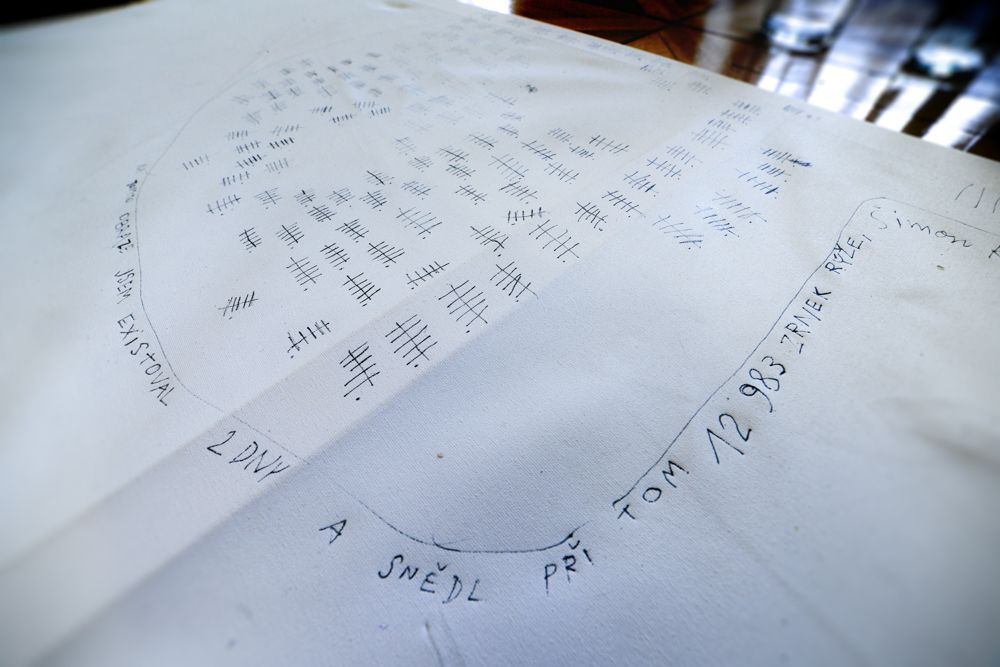 JSEM EXISTOVAL 2 DNY A SNĚDL PŘI TOM 12 983 ZRNEK RÝŽE,
Šimon